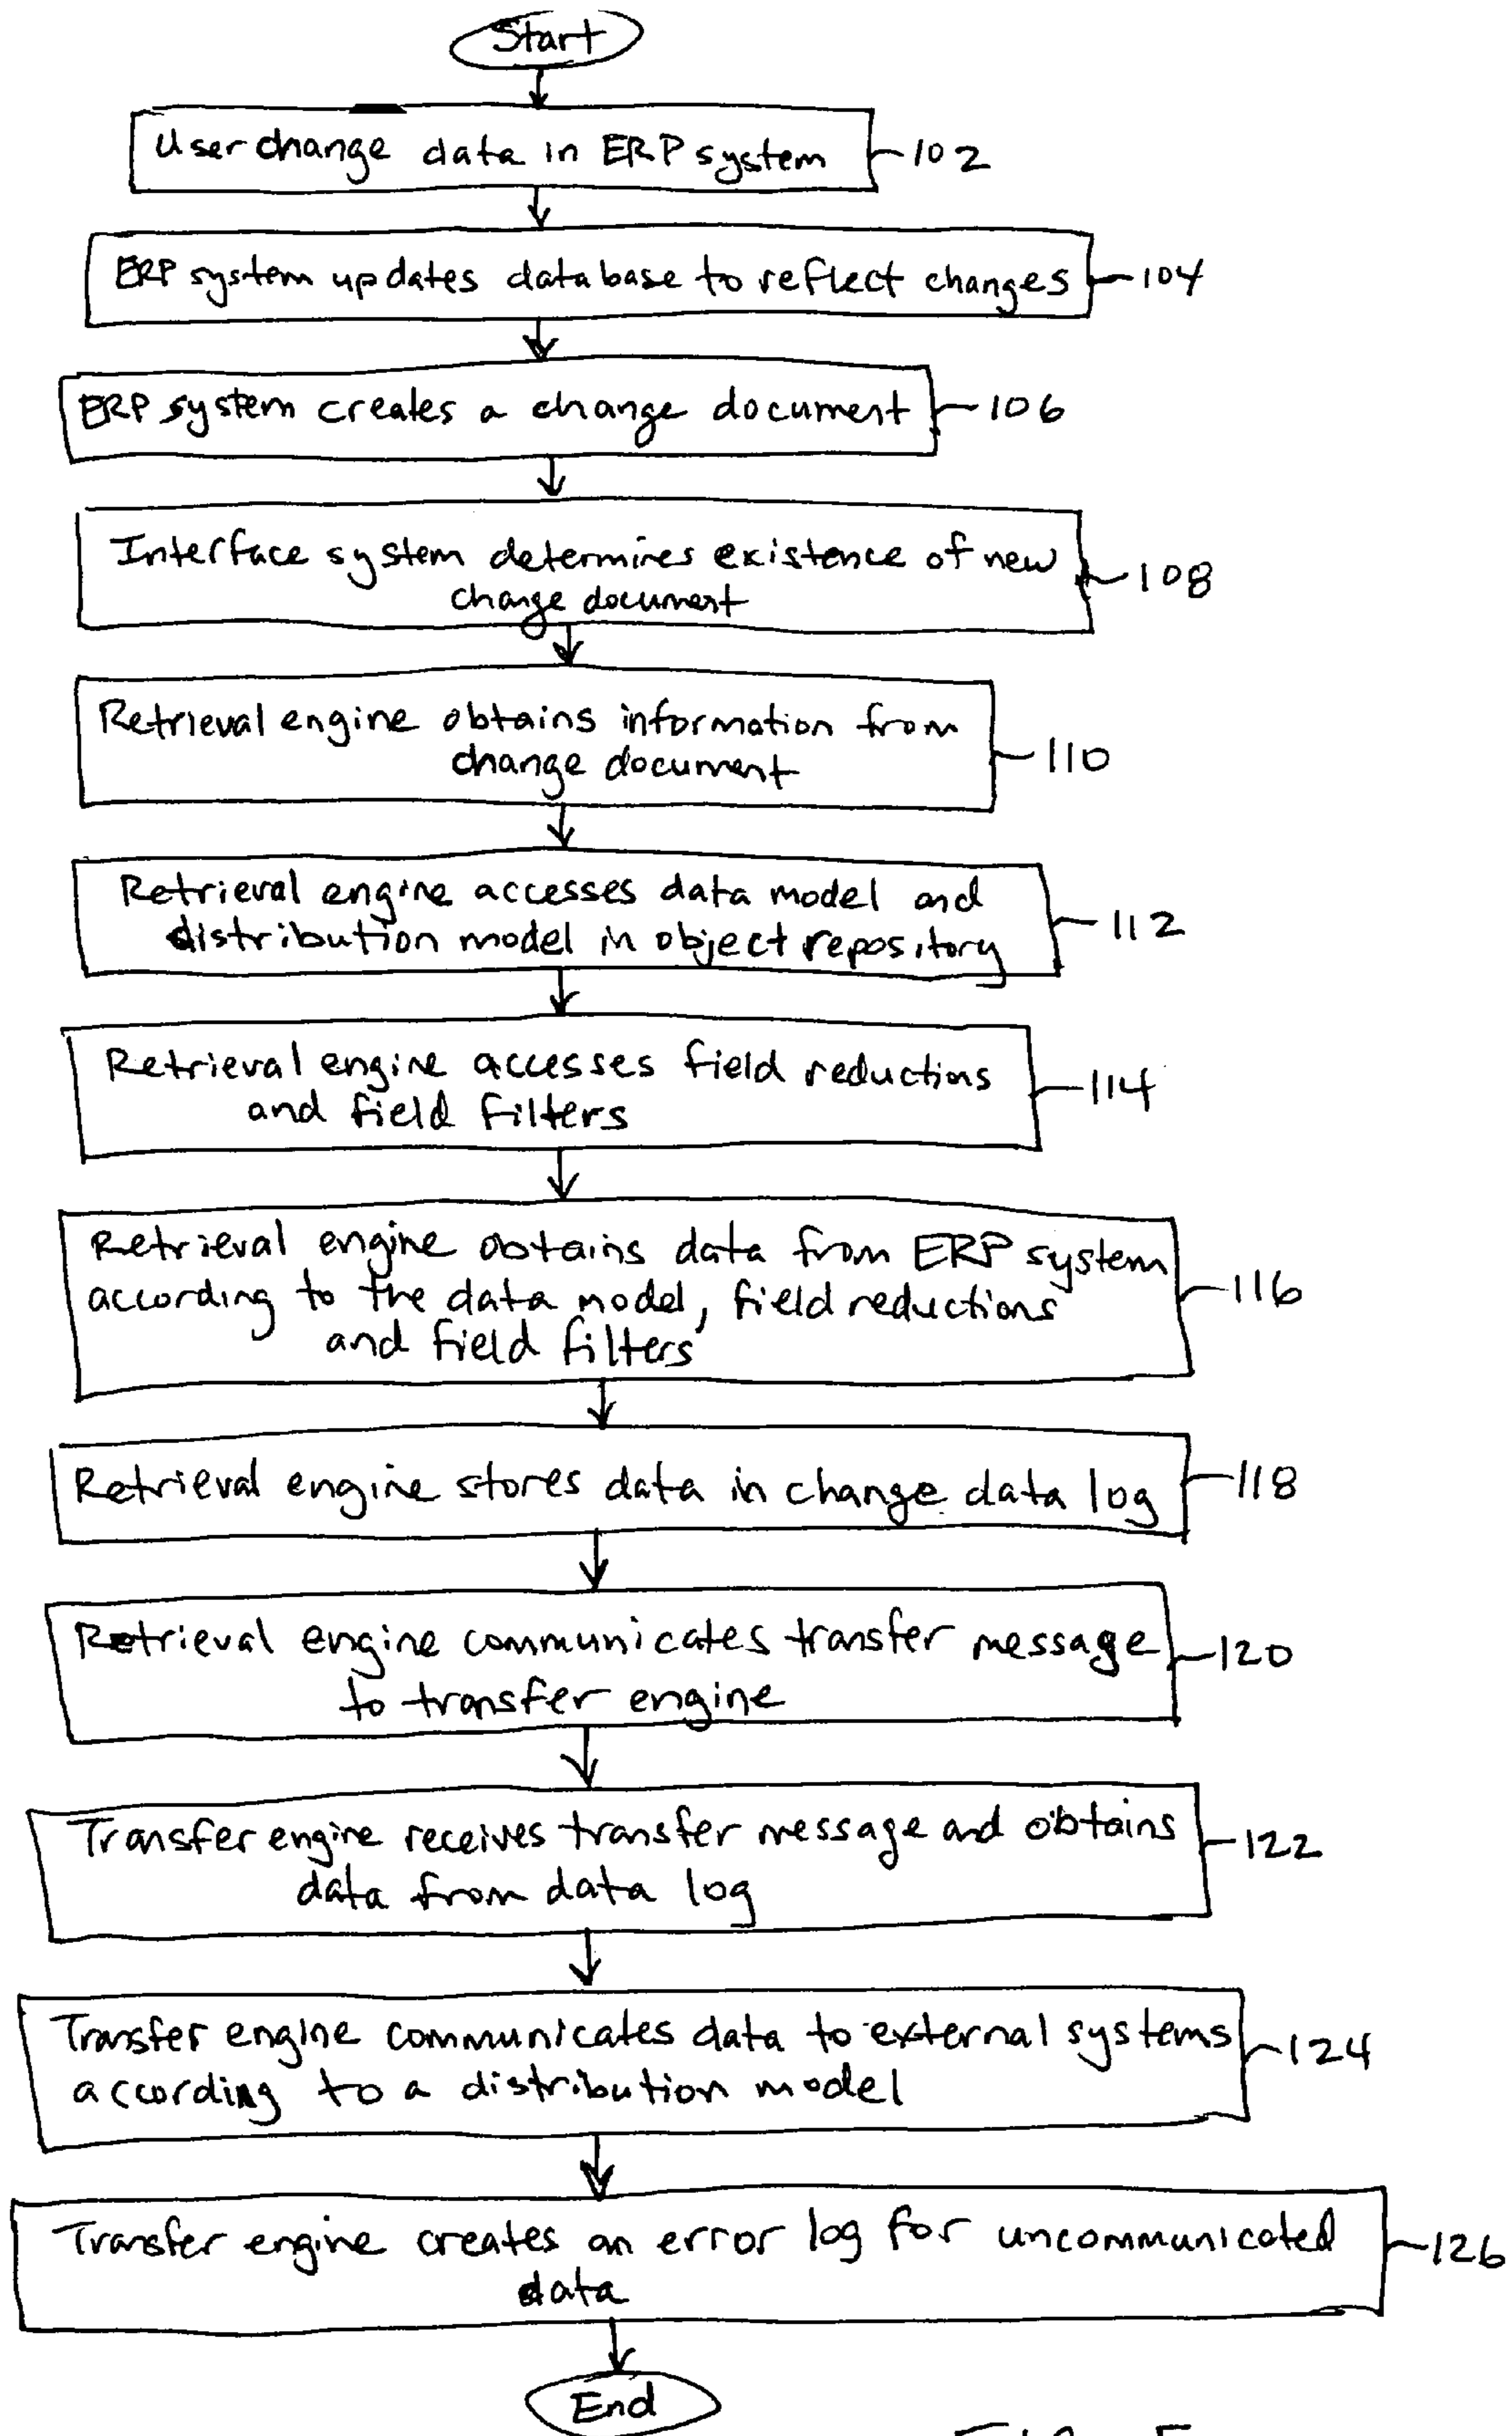 Start
User change data in ERP system
102
ERP system updates database to reflect changes
104
ERP system creates a change document
106
Interface system determines existence of new
change document
108
Retrieval engine obtains information from
change document
110
Retrieval engine accesses data model and
distribution model in object repository
112
Retrieval engine accesses field reductions
and field filters
114
Retrieval engine obtains data from ERP system
according to the data model, field reductions
and field filters
116
Retrieval engine stores data in change data log
118
Retrieval engine communicates transfer message
to transfer engine
120
Transfer engine receives transfer message and obtains
data from data log
122
Transfer engine communicates data to external systems
according to a distribution model
124
Transfer engine creates an error log for uncommunicated
data
126
End